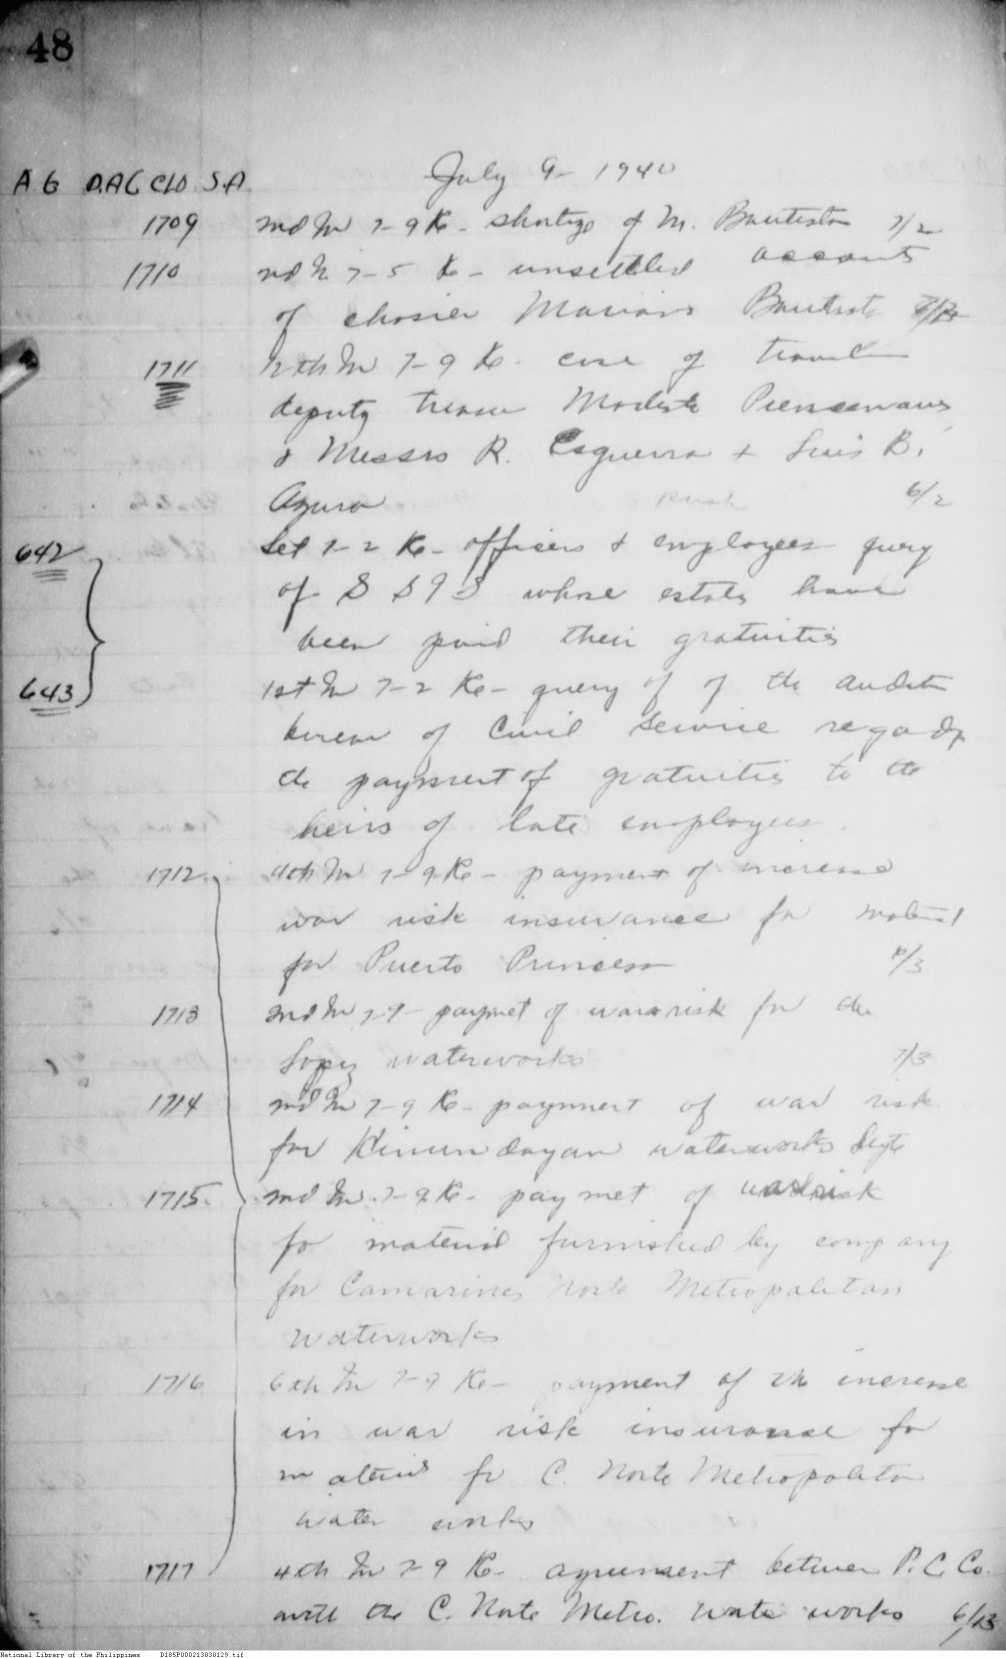 48
July 9 - 1940
A G D.A.G C/O S.A.
1709 md In 7-9 Ke - shortage of M. Bautista 7/2
1710 md In 7-5 Ke - unsettled accounts
of Mariano Bautista
1711 In 7-9 Ke - case of
deputy Modesto
& Messrs R. Esguerra & Luis B.
Azura Rush 6/2
642 Let 7-2 Ke - officers & employees query
of whose estate have
been paid their gratuities
643 1st In 7-2 Ke - query of of the auditor
bureau of Civil Service regardg
the payment of gratuities to the
heirs of late employees.
1712 4th In 7-9 Ke - payment of increase
war risk insurance for material
for Puerto Princesa 10/3
1713 md In 7-9 - paymet of war risk for the
Lopez waterworks 7/3
1714 md In 7-9 Ke - payment of war risk
for Hinundayan waterworks Leyte
1715. md In. 7-9 Ke - paymet of war risk
fo material furnished by company
for Camarines Norte Metropolitan
waterworks
1716 6th In 7-9 Ke - payment of the increase
in war risk insurance for
material for C. Norte Metropolitan
water works
1717 4th In 7-9 Ke - agreement between P. C. Co.
with the C. Norte Metro. Water works 6/13
National Library of the Philippines D185P000213830129.tif